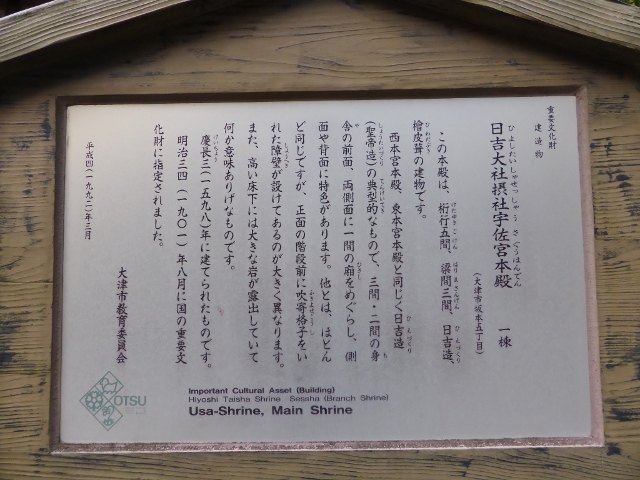 重要文化財
建造物
日吉大社摂社宇佐宮本殿 一棟
ひよしたいしゃせっしゃうさぐうほんでん
(大津市坂本五丁目)
この本殿は、桁行五間、梁間三間、日吉造、
檜皮葺の建物です。
西本宮本殿、東本宮本殿と同じく日吉造
(聖帝造)の典型的なもので、三間・二間の身
舎の前面、両側面に一間の廂をめぐらし、側
面や背面に特色があります。他とは、ほとん
ど同じですが、正面の階段前に吹寄格子をい
れた障壁が設けてあるのが大きく異なります。
また、高い床下には大きな岩が露出していて
何か意味ありげなものです。
慶長三(一五九八)年に建てられたものです。
明治三四(一九〇一)年八月に国の重要文
化財に指定されました。
平成四(一九九二)年三月
大津市教育委員会
OTSU
Important Cultural Asset (Building)
Hiyoshi Taisha Shrine Sessha (Branch Shrine)
Usa-Shrine, Main Shrine